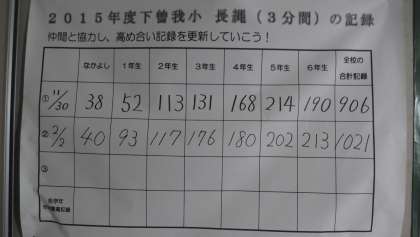 2015年度下曽我小 長縄（3分間）の記録
仲間と協力し、高め合い記録を更新していこう！
なかよし 1年生 2年生 3年生 4年生 5年生 6年生 全校の合計記録
① 11/30 38 52 113 131 168 214 190 906
② 2/2 40 93 117 176 180 202 213 1021
③